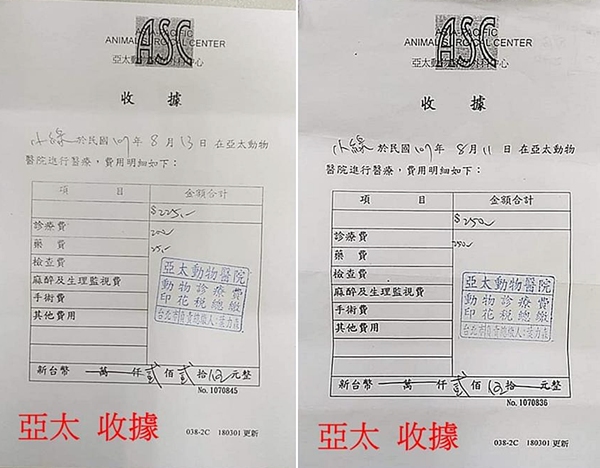 ASC
ANIMAL CENTER
收 據
小綠 於民國 107 年 8 月 13 日 在亞太動物
醫院進行醫療，費用明細如下：
項 目 金額合計
$225
診療費 200
藥 費 25
檢查費
麻醉及生理監視費
手術費
其他費用
亞太動物醫院
動物診療費
印花稅總繳
新台幣 萬 仟 貳 佰 貳 拾 伍 元整
No. 1070845
亞太 收據
038-2C 180301 更新
ASC
ANIMAL CENTER
收 據
小綠 於民國 107 年 8 月 11 日 在亞太動物
醫院進行醫療，費用明細如下：
項 目 金額合計
$250
診療費 250
藥 費
檢查費
麻醉及生理監視費
手術費
其他費用
亞太動物醫院
動物診療費
印花稅總繳
新台幣 萬 仟 貳 佰 伍 拾 元整
No. 1070836
亞太 收據
038-2C 180301 更新